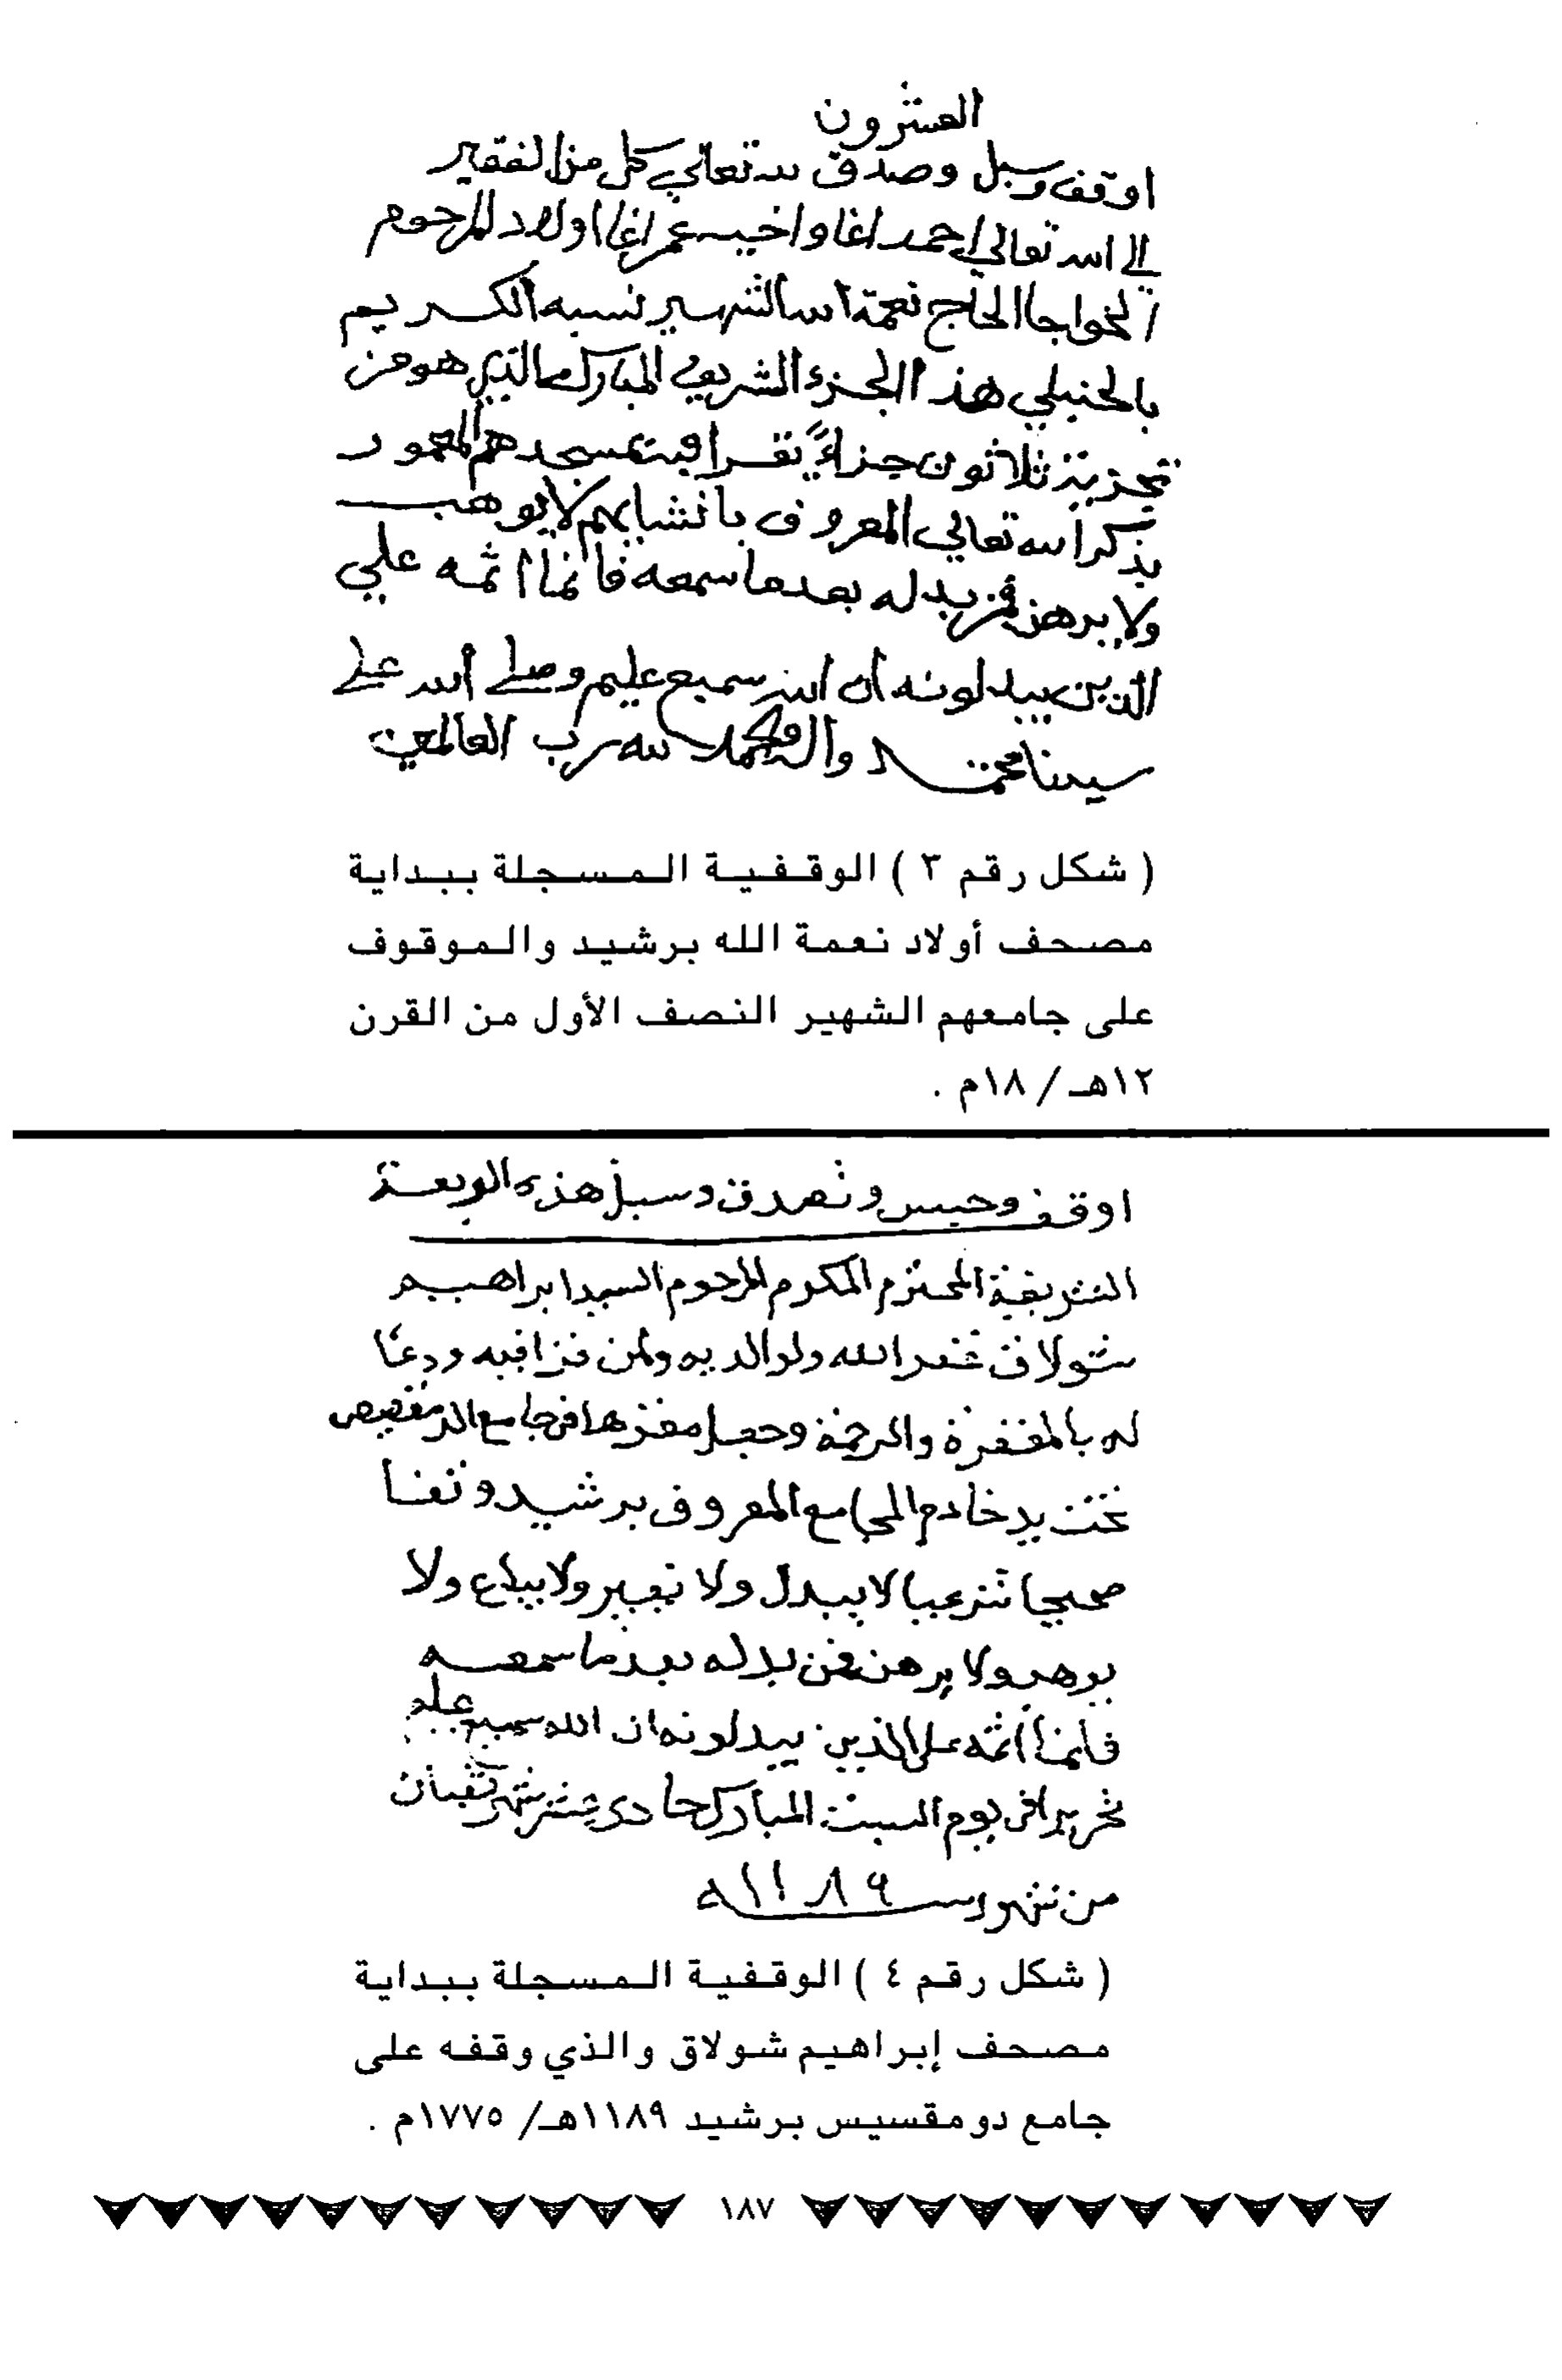 العشرون
اوقف وسبل وصدق لله تعالي كل من الفقير
الى الله تعالى احمد اغا واخيه عمر اغا اولاد المرحوم
الخواجا الحاج نعمة الله الشهير نسبه الكريم
بالحنبلي هذا الجزء الشريف المبارك الذي هو من
تجزية ثلاثون جزاءً يقرا فيه بمسجدهم المعمور
بذكر الله تعالي المعروف بانشايهم لا يوهب
ولا يرهن فمن بدله بعد ما سمعه فانما اثمه علي
الذين يبدلونه ان الله سميع عليم وصلى الله على
سيدنا محمد واله والحمد لله رب العالمين
( شكل رقم ٣ ) الوقفية المسجلة ببداية
مصحف أولاد نعمة الله برشيد والموقوف
على جامعهم الشهير النصف الأول من القرن
١٢هـ / ١٨م .
اوقف وحبس وتصدق وسبل هذه الربعة
الشريفة المحترم المكرم المرحوم السيد ابراهيم
شولاق غفر الله ولوالديه ولمن قرا فيه ودعا
له بالمغفرة والرحمة وجعل مقرها في جامع الدمقصيص
تحت يد خادم الجامع المعروف برشيد وقفا
صحيحا شرعيا لا يبدل ولا يغير ولا يباع ولا
يوهب ولا يرهن فمن بدله بعد ما سمعه
فانما اثمه على الذين يبدلونه ان الله سميع عليم
تحريرا في يوم السبت المبارك حادي عشر شهر شعبان
من شهور سـ ١١٨٩ ه
( شكل رقم ٤ ) الوقفية المسجلة ببداية
مصحف إبراهيم شولاق والذي وقفه على
جامع دومقسيس برشيد ١١٨٩هـ/ ١٧٧٥م .
١٨٧